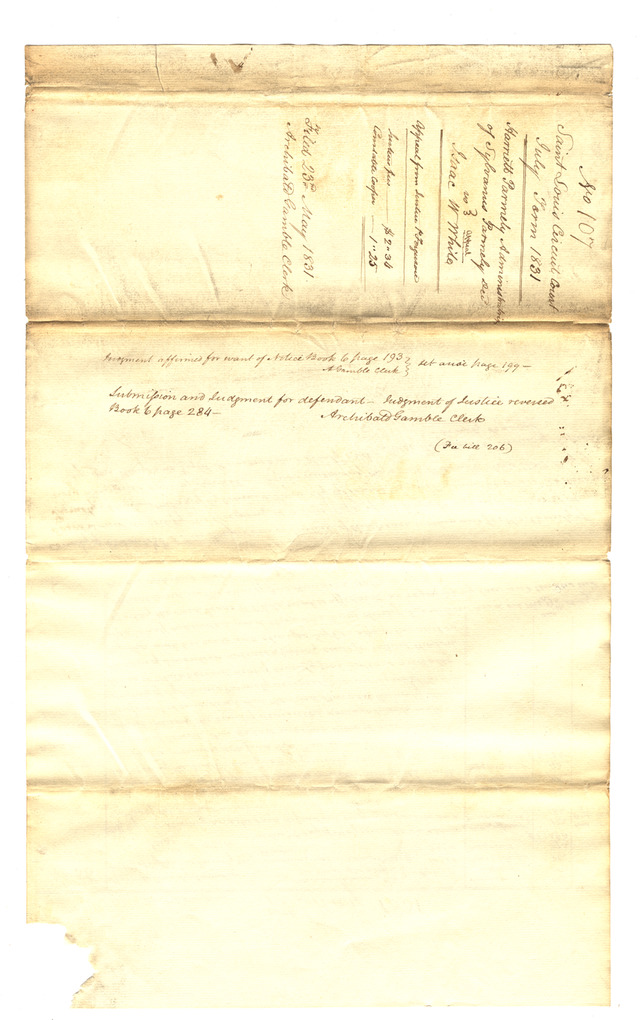 No 107
Saint Louis Circuit Court
July Term 1831
Harriett Parmely Administratrix
of Sylvanus Parmely decd
vs
Isaac W White
Appeal from Justice Ferguson
Justices fees — $2-34
Constable Cooper — 1-25
Filed 23d May 1831
Archibald Gamble Clerk
Judgment affirmed for want of Notice Book 6 page 193 set aside page 199 —
A Gamble Clerk
Submission and Judgment for defendant — Judgment of Justice reversed
Book 6 page 284 — Archibald Gamble Clerk
(Fee bill 206)